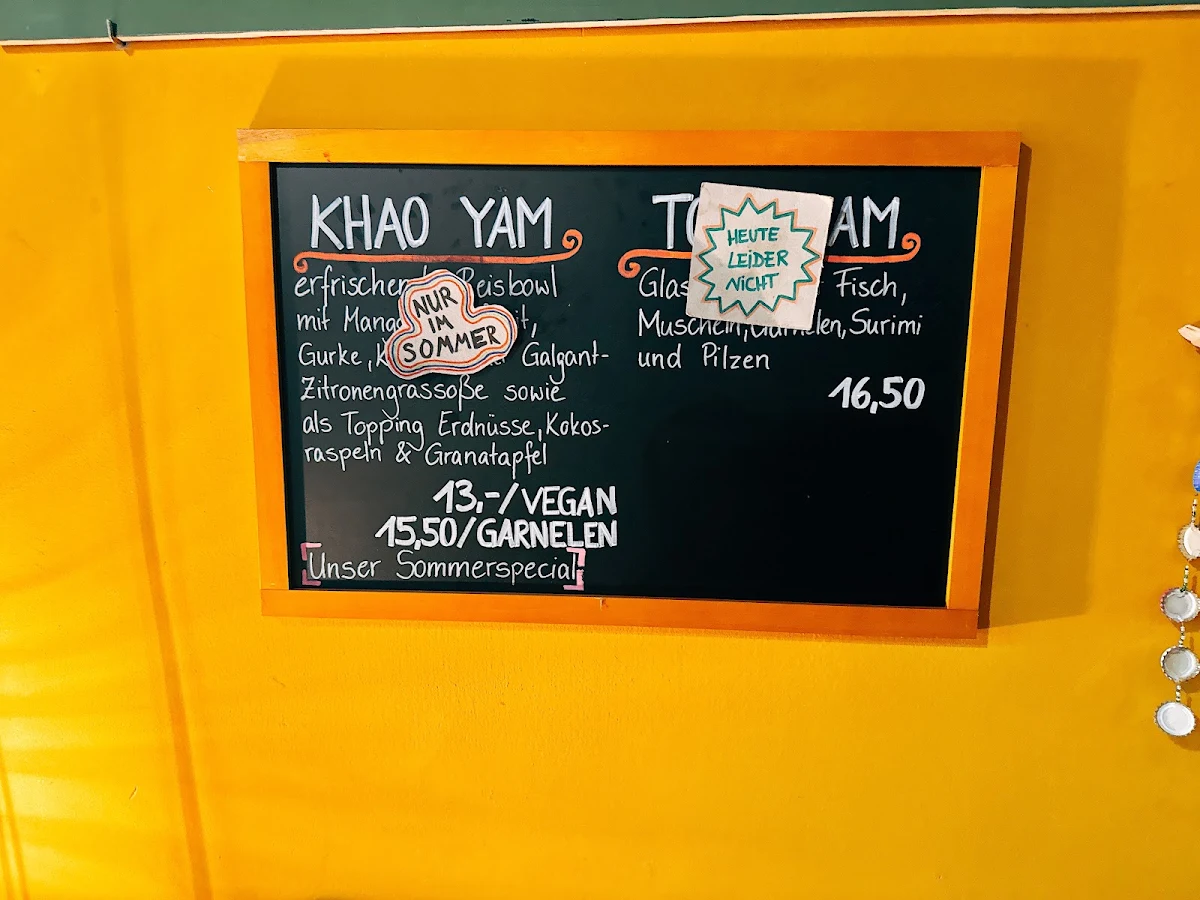 KHAO YAM
erfrischende Reisbowl
mit
Gurke, Galgant-
Zitronengrassoße sowie
als Topping Erdnüsse, Kokos-
raspeln & Granatapfel
13,-/VEGAN
15,50/GARNELEN
Unser Sommerspecial
NUR
IM
SOMMER
HEUTE
LEIDER
NICHT
Fisch,
Muscheln, Garnelen, Surimi
und Pilzen
16,50